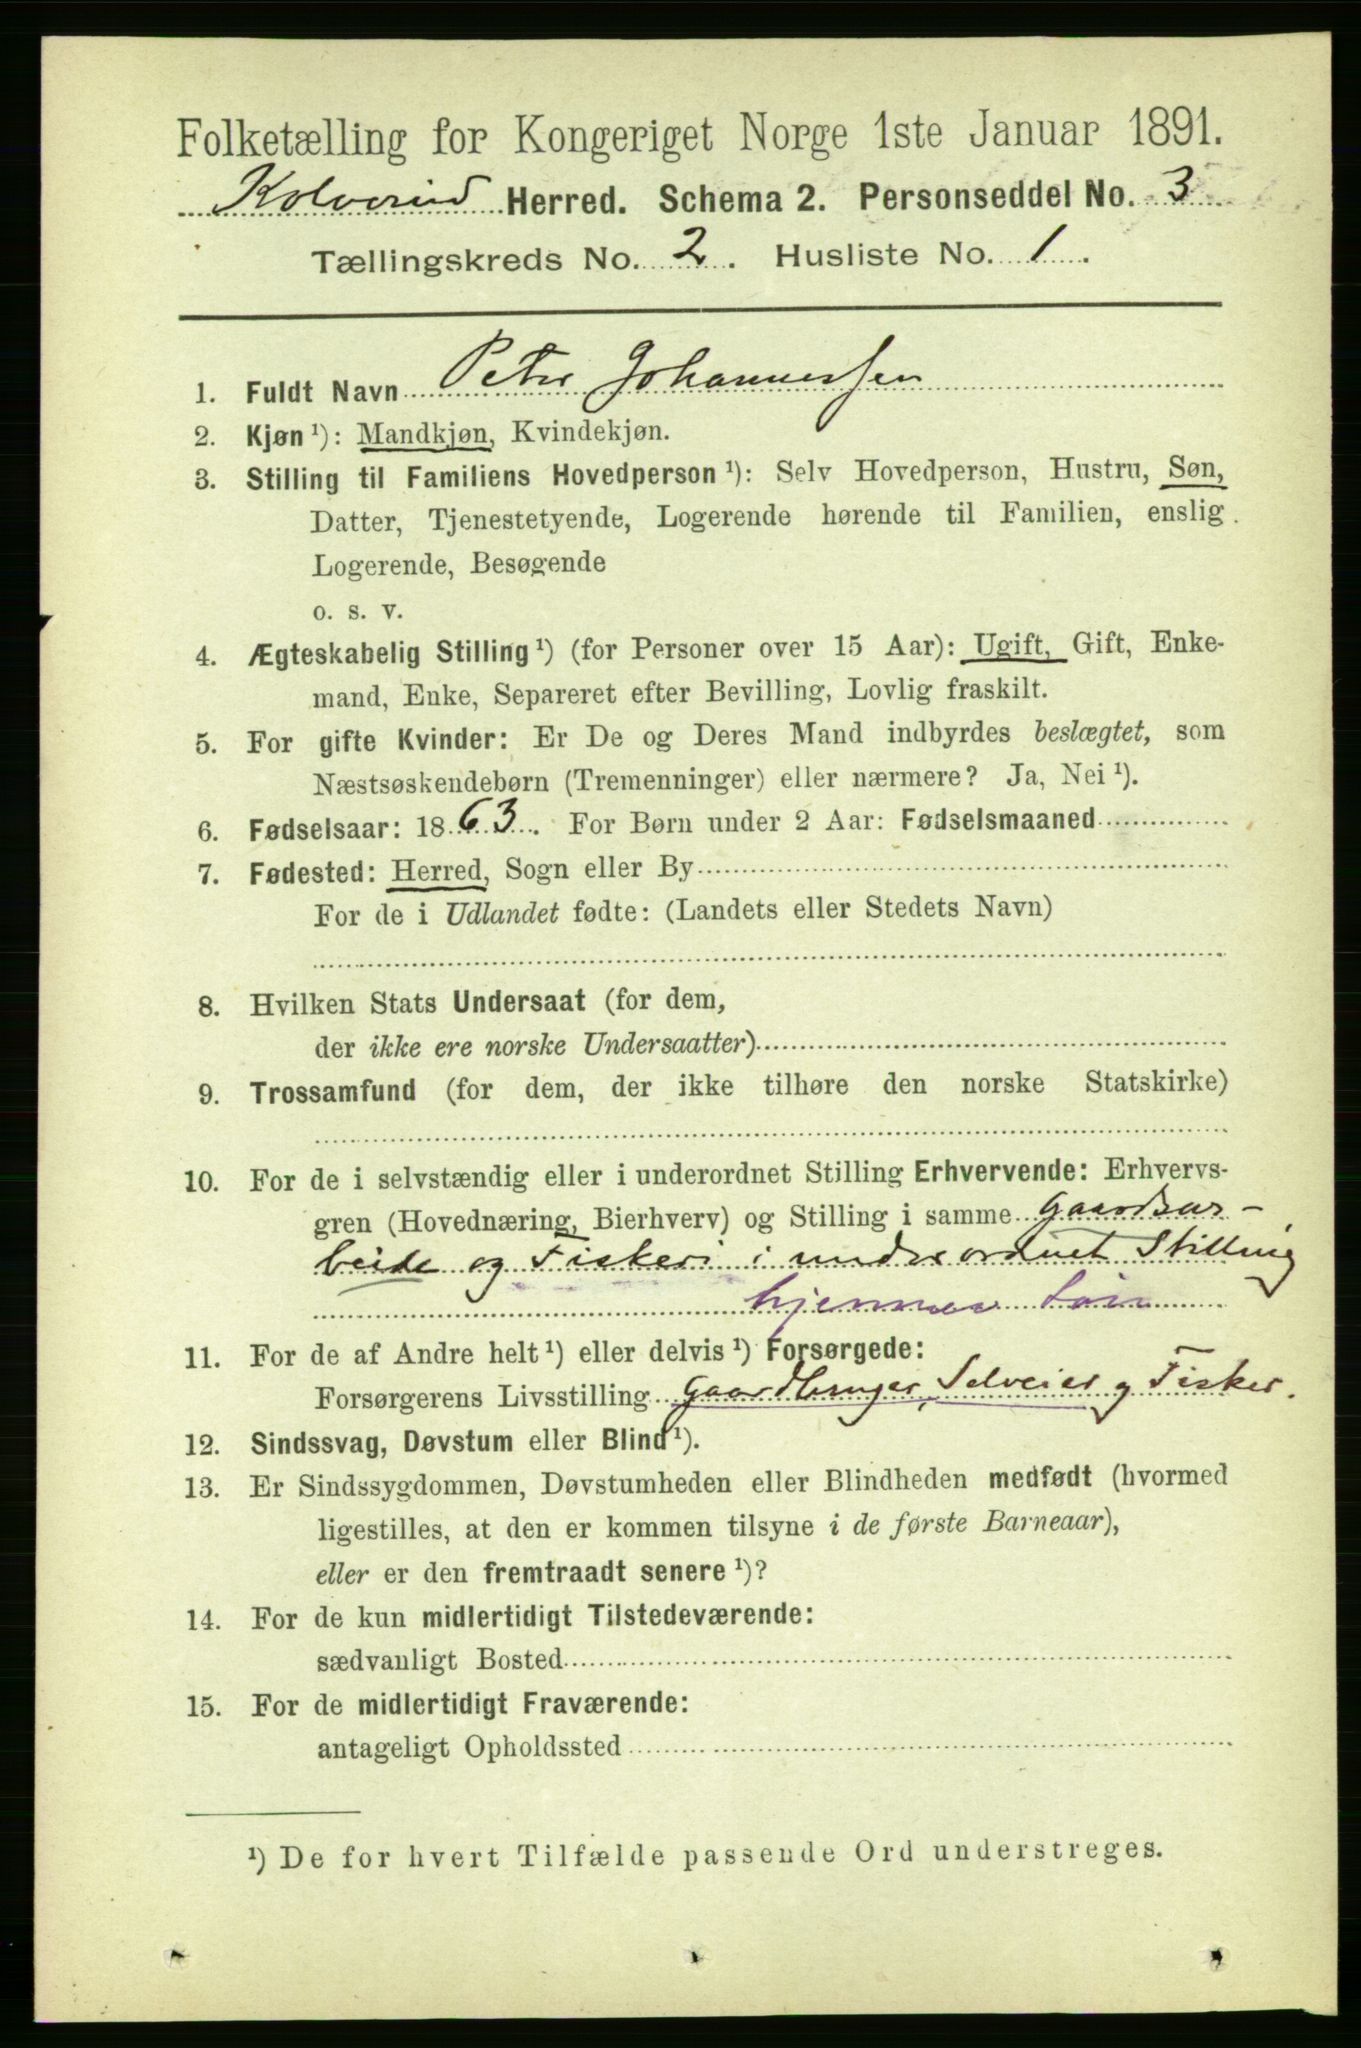 Folketælling for Kongeriget Norge 1ste Januar 1891.
Kolvereid Herred. Schema 2. Personseddel No. 3
Tællingskreds No. 2. Husliste No. 1.
1. Fuldt Navn Peter Johannessen
2. Kjøn ¹): Mandkjøn, Kvindekjøn.
3. Stilling til Familiens Hovedperson ¹): Selv Hovedperson, Hustru, Søn,
Datter, Tjenestetyende, Logerende hørende til Familien, enslig
Logerende, Besøgende
o. s. v.
4. Ægteskabelig Stilling ¹) (for Personer over 15 Aar): Ugift, Gift, Enke-
mand, Enke, Separeret efter Bevilling, Lovlig fraskilt.
5. For gifte Kvinder: Er De og Deres Mand indbyrdes beslægtet, som
Næstsøskendebørn (Tremenninger) eller nærmere? Ja, Nei ¹).
6. Fødselsaar: 1863. For Børn under 2 Aar: Fødselsmaaned
7. Fødested: Herred, Sogn eller By
For de i Udlandet fødte: (Landets eller Stedets Navn)
8. Hvilken Stats Undersaat (for dem,
der ikke ere norske Undersaatter)
9. Trossamfund (for dem, der ikke tilhøre den norske Statskirke)
10. For de i selvstændig eller i underordnet Stilling Erhvervende: Erhvervs-
gren (Hovednæring, Bierhverv) og Stilling i samme Gaardsar-
beide og Fiskeri i underordnet Stilling
hjemmev Søn
11. For de af Andre helt ¹) eller delvis ¹) Forsørgede:
Forsørgerens Livsstilling Gaardbruger, Selveier og Fisker.
12. Sindssvag, Døvstum eller Blind ¹).
13. Er Sindssygdommen, Døvstumheden eller Blindheden medfødt (hvormed
ligestilles, at den er kommen tilsyne i de første Barneaar),
eller er den fremtraadt senere ¹)?
14. For de kun midlertidigt Tilstedeværende:
sædvanligt Bosted
15. For de midlertidigt Fraværende:
antageligt Opholdssted
¹) De for hvert Tilfælde passende Ord understreges.